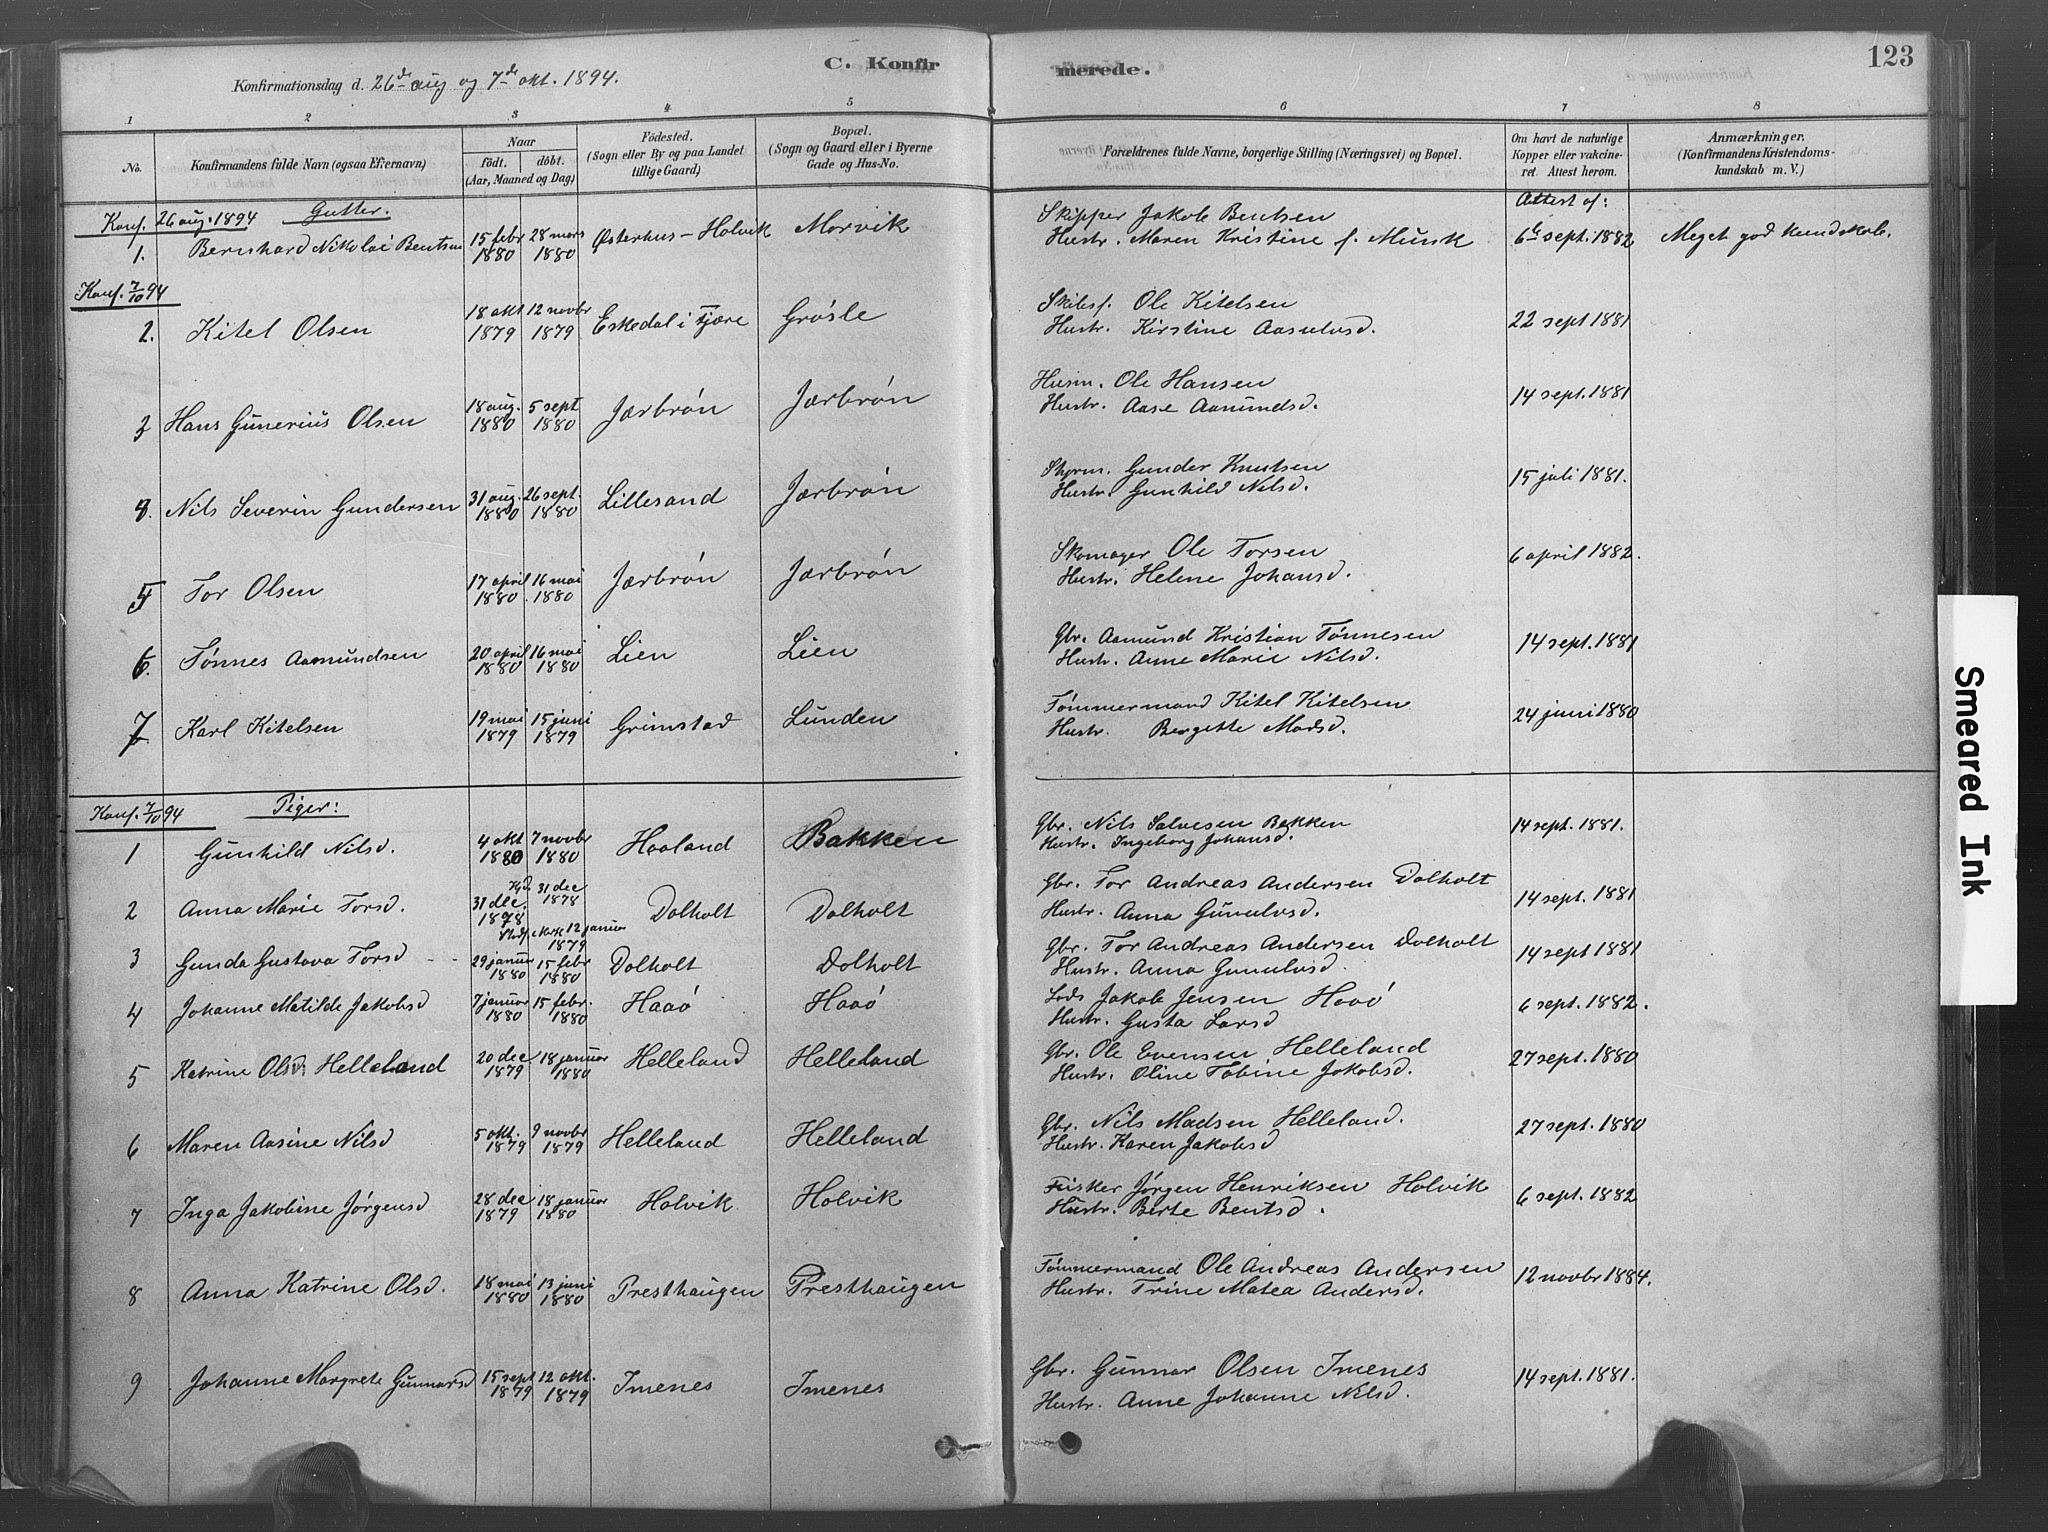 C. Konfirmerede.
123
Konfirmationsdag d. 26de aug og 7de okt. 1894.
1 2 3 4 5 6 7 8
No.
Konfirmandens fulde Navn (ogsaa Efternavn)
Naar
födt. döbt.
(Aar, Maaned og Dag)
Födested.
(Sogn eller By og paa Landet
tillige Gaard)
Bopæl.
(Sogn og Gaard eller i Byerne
Gade og Hus-No.
Forældrenes fulde Navne, borgerlige Stilling (Næringsvei) og Bopæl.
Om havt de naturlige
Kopper eller vakcine-
ret. Attest herom.
Anmærkninger.
(Konfirmandens Kristendoms-
kundskab m. V.)
Konf. 26 aug. 1894 Gutter.
Attest af:
1. Bernhard Nikolai Bentsen 15 febr 1880 28 mars 1880 Østerhus - Holvik Morvik Skipper Jakob Bentsen
Hustr. Maren Kristine f. Munk 6te sept. 1882 Meget god kundskab.
Konf. 7/10 94
2. Kitel Olsen 18 okt 1879 12 novbr 1879 Eskedal i Fjære Grøsle Skibsf. Ole Kitelsen
Hustr. Kirstine Aasulvsd. 22 sept 1881
3 Hans Gunerius Olsen 18 aug. 1880 5 sept 1880 Jærbrøn Jærbrøn Husm. Ole Hansen
Hustr. Aase Aamundsd. 14 sept. 1881
4. Nils Severin Gundersen 31 aug. 1880 26 sept. 1880 Lillesand Jærbrøn Styrm. Gunder Knutsen
Hustr. Gunhild Nilsd. 15 juli 1881.
5 Tor Olsen 17 april 1880 16 mai 1880 Jærbrøn Jærbrøn Skomager Ole Torsen
Hustr. Helene Johansd. 6 april 1882.
6. Tønnes Aamundsen 20 april 1880 16 mai 1880 Lien Lien Gbr. Aamund Kristian Tønnesen
Hustr. Anne Marie Nilsd. 14 sept. 1881
7. Karl Kitelsen 19 mai 1879 15 juni 1879 Grimstad Lunden Tømmermand Kitel Kitelsen
Hustr. Bergette Madsd. 24 juni 1880
Konf. 7/10 94 Piger:
1 Gunhild Nilsd. 4 okt 1880 7 novbr 1880 Haaland Bakken Gbr. Nils Salvesen Bakken
Hustr. Ingeborg Johansd. 14 sept. 1881.
2 Anna Marie Torsd. 31 dec. 1878 Hjd. 31 dec 1878 12 januar 1879 Dolholt Dolholt Gbr. Tor Andreas Andersen Dolholt
Hustr. Anna Gunulvsd. 14 sept. 1881
3 Gunda Gustava Torsd 29 januar 1880 15 febr 1880 Dolholt Dolholt Gbr. Tor Andreas Andersen Dolholt
Hustr. Anna Gunulvsd. 14 sept. 1881
4 Johanne Matilde Jakobsd 7 januar 1880 15 febr. 1880 Haaø Haaø Lods Jakob Jensen Haaø
Hustr. Gusta Larsd 6 sept. 1882.
5 Katrine Olsd. Helleland 20 dec 1879 18 januar 1880 Helleland Helleland Gbr. Ole Evensen Helleland
Hustr. Oline Tobine Jakobsd. 27 sept. 1880
6 Maren Aasine Nilsd 5 okt. 1879 9 novbr 1879 Helleland Helleland Gbr. Nils Madsen Helleland.
Hustr. Karen Jakobsd 27 sept. 1880
7 Inga Jakobine Jørgensd 28 dec 1879 18 januar 1880 Holvik Holvik Fisker Jørgen Henriksen Holvik
Hustr. Berte Bentsd. 6 sept. 1882
8 Anna Katrine Olsd. 18 mai 1880 13 juni 1880 Presthaugen Presthaugen Tømmermand Ole Andreas Andersen
Hustr. Trine Matea Andersd. 12 novbr 1884.
9 Johanne Margrete Gunnarsd 15 sept 1879 12 okt. 1879 Imenes Imenes Gbr. Gunnar Olsen Imenes
Hustr. Anne Johanne Nilsd. 14 sept. 1881.
Smeared Ink